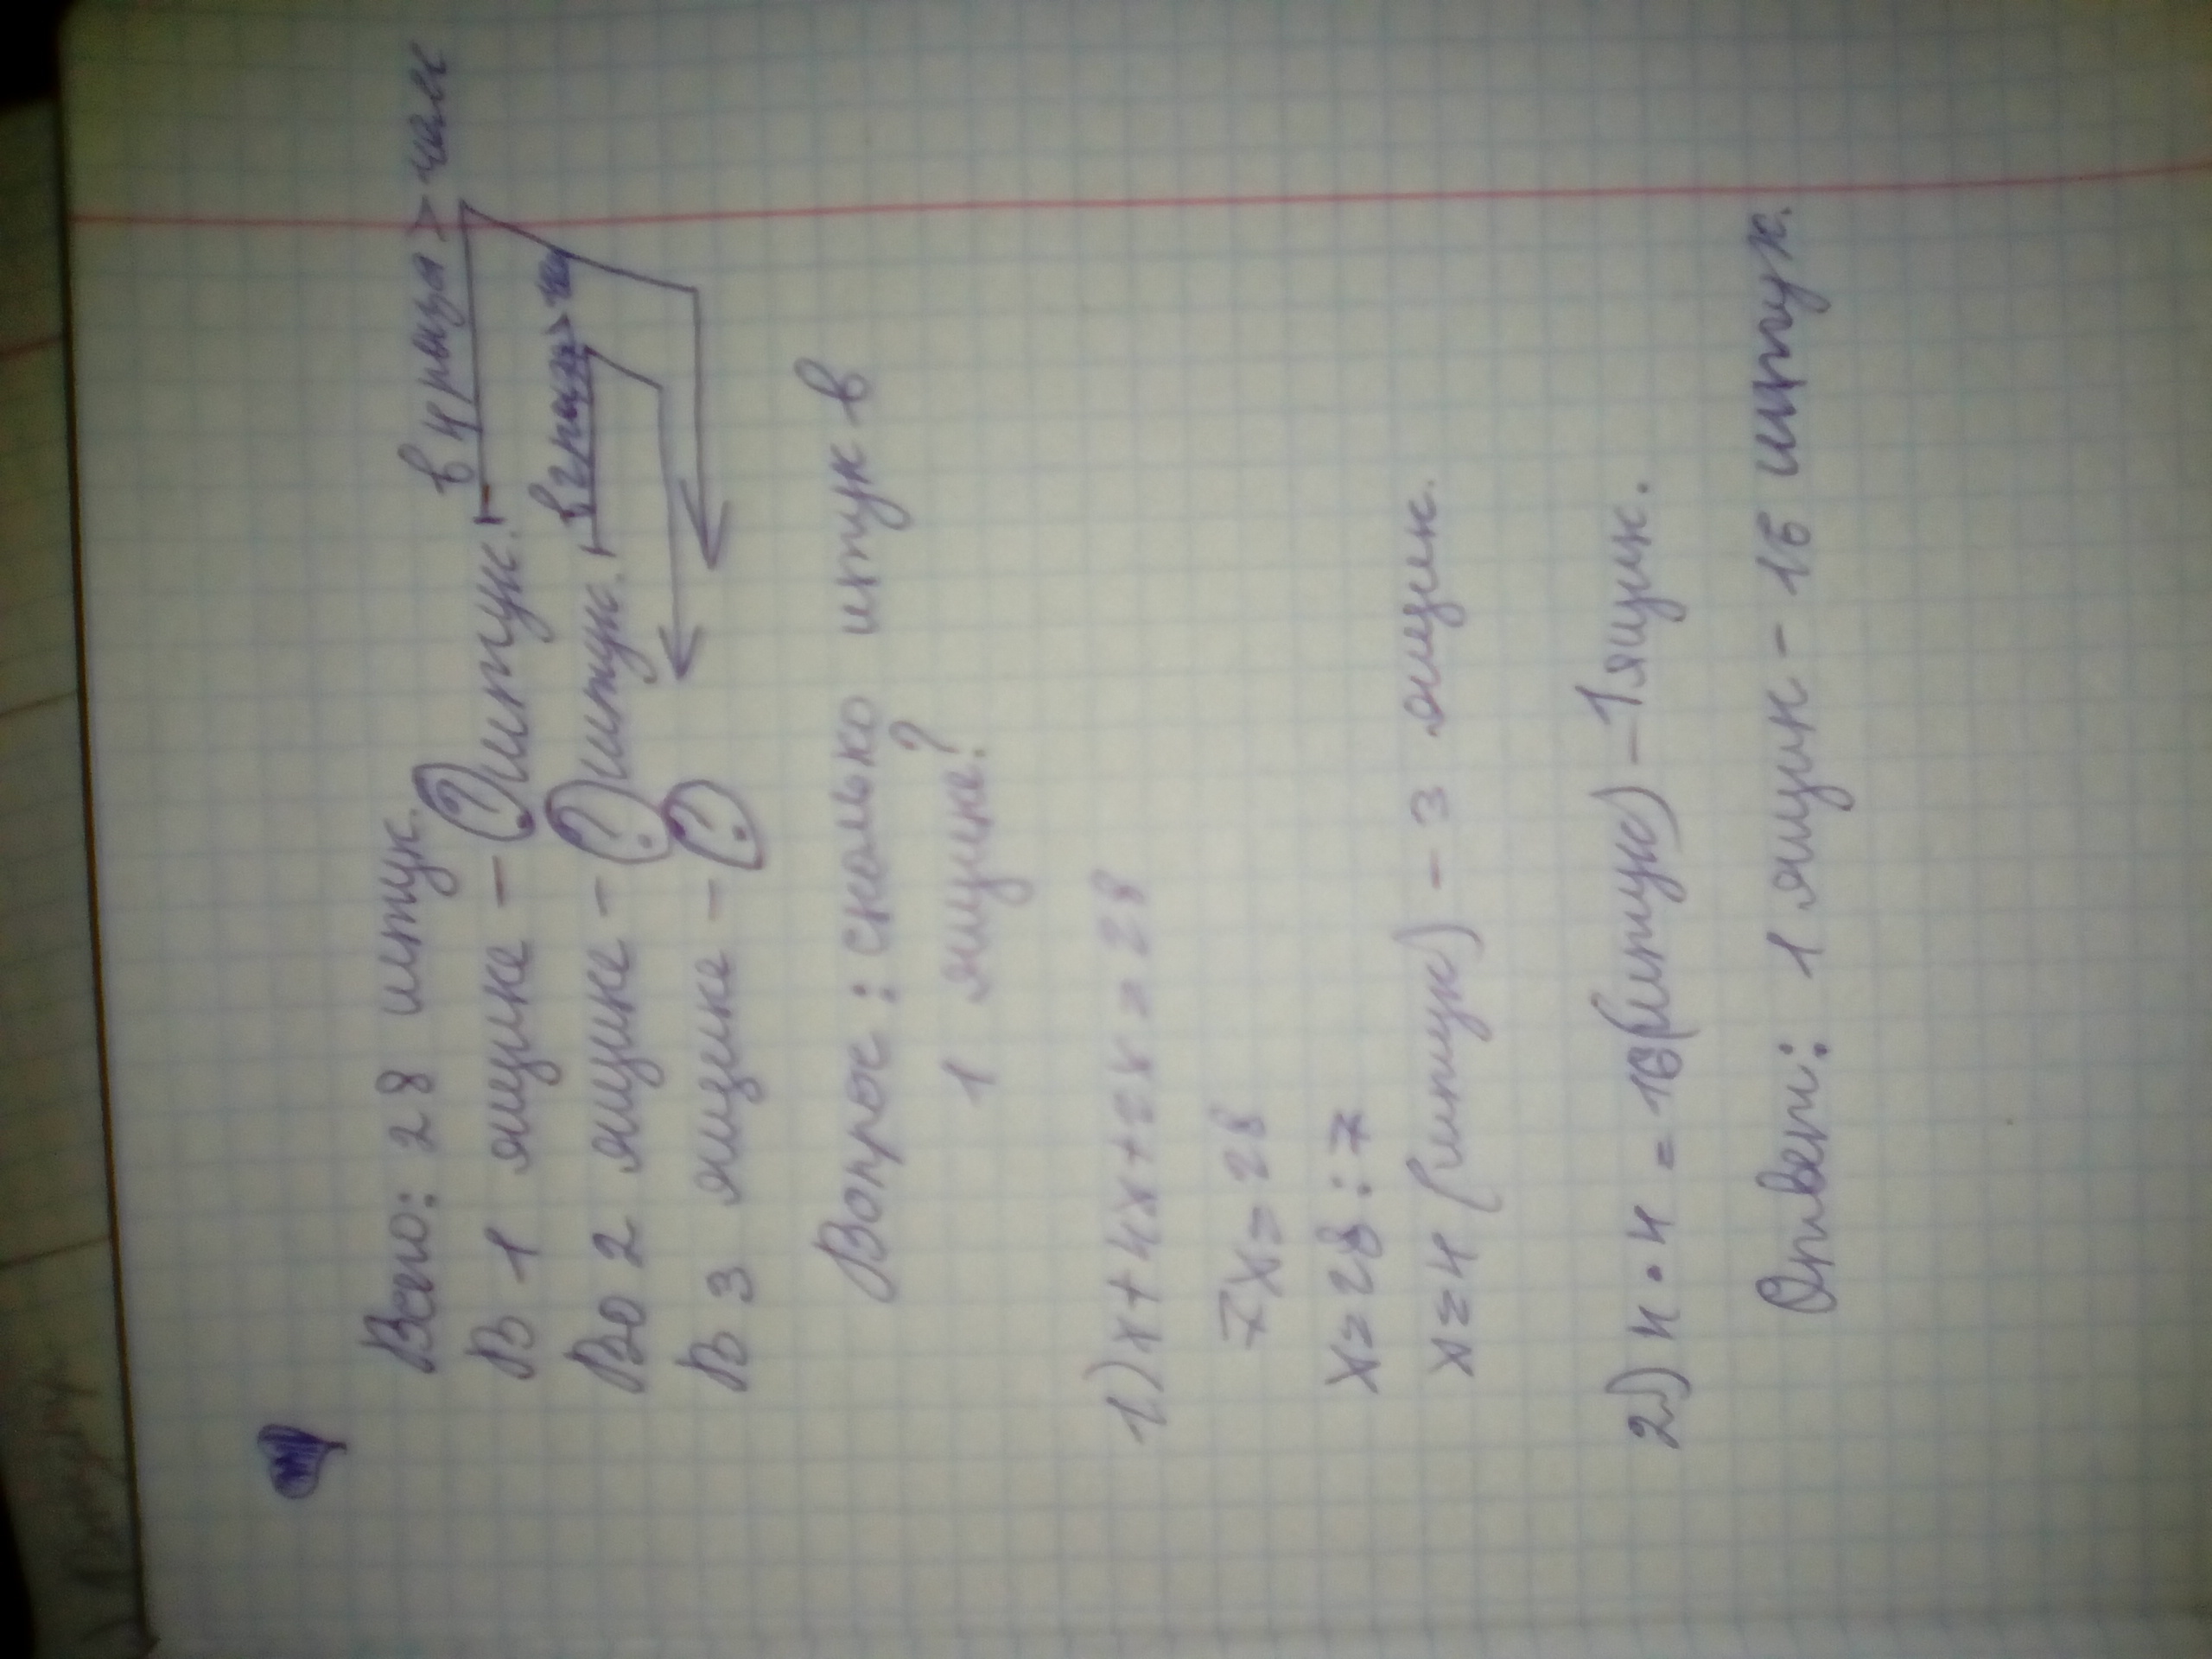 Всего: 28 штук.
В 1 ящике - ? штук. в 4 раза > чем
Во 2 ящике - ? штук. в 2 раза > чем
В 3 ящике - ?
Вопрос: сколько штук в
1 ящике?
1) x+4x+2x=28
7x=28
x=28:7
x=4 (штук) - 3 ящик.
2) 4·4=16(штук) - 1 ящик.
Ответ: 1 ящик - 16 штук.